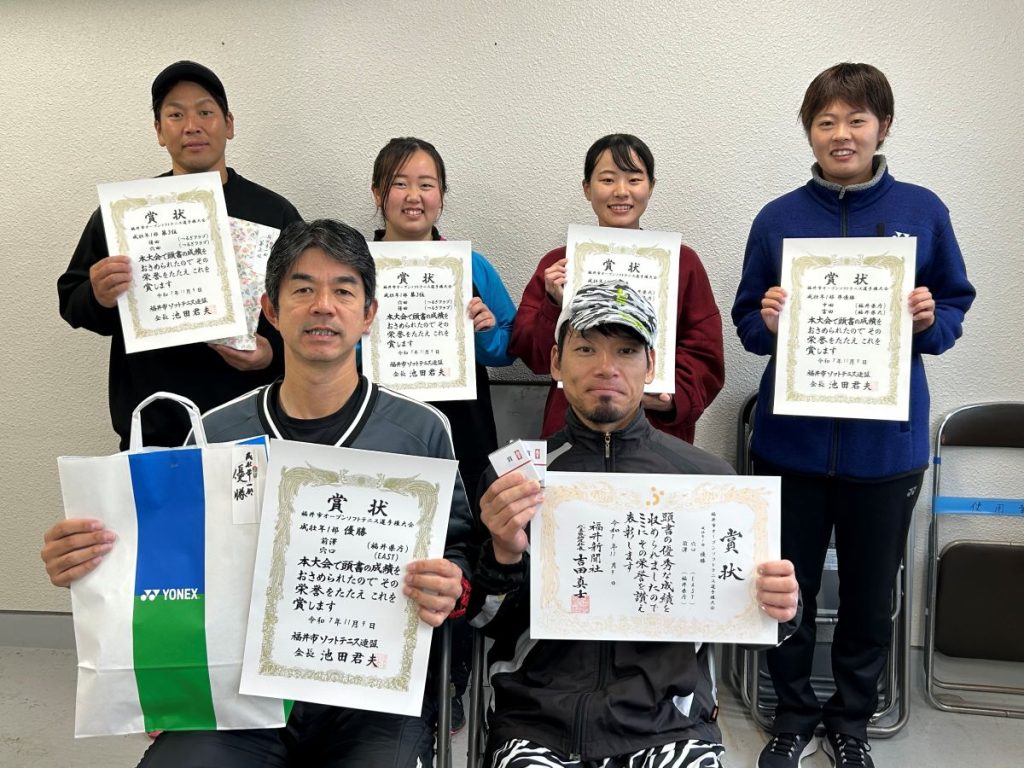 賞状
福井市オープンソフトテニス選手権大会
成壮年1部 第3位
(つるぎクラブ)
(つるぎクラブ)
本大会で頭書の成績を
おさめられたので その
栄誉をたたえ これを
賞します
令和7年11月9日
福井市ソフトテニス連盟
会長 池田君夫
賞状
福井市オープンソフトテニス選手権大会
成壮年1部 第3位
(つるぎクラブ)
(つるぎクラブ)
本大会で頭書の成績を
おさめられたので その
栄誉をたたえ これを
賞します
令和7年11月9日
福井市ソフトテニス連盟
会長 池田君夫
賞状
福井市オープンソフトテニス選手権大会
賞状
福井市オープンソフトテニス選手権大会
成壮年1部 準優勝
(福井県庁)
(福井県庁)
本大会で頭書の成績を
おさめられたので その
栄誉をたたえ これを
賞します
令和7年11月9日
福井市ソフトテニス連盟
会長 池田君夫
優勝
YONEX
賞状
福井市オープンソフトテニス選手権大会
成壮年1部 優勝
前澤 (福井県庁)
穴口 (EAST)
本大会で頭書の成績を
おさめられたので その
栄誉をたたえ これを
賞します
令和7年11月9日
福井市ソフトテニス連盟
会長 池田君夫
賞状
福井市オープンソフトテニス選手権大会
成壮年1部 優勝
穴口 (EAST)
前澤 (福井県庁)
頭書の優秀な成績を
収められましたので
ここにその栄誉を讃え
表彰します
令和7年11月9日
福井新聞社
吉田真士
使用